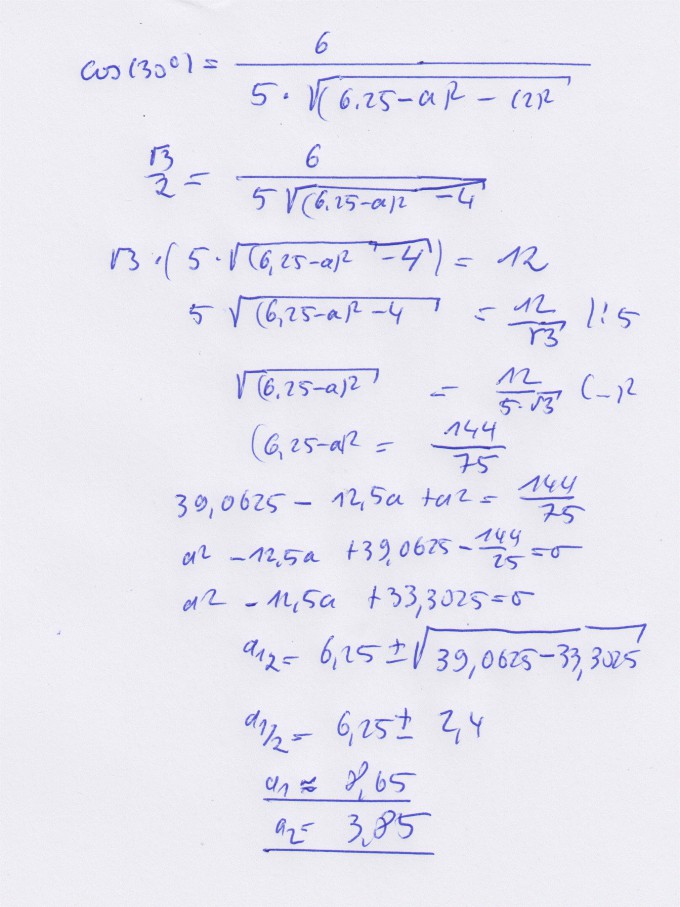 cos(30°) = 6 / (5 · √((6.25-a)² - (2)²))
√3/2 = 6 / (5 √((6.25-a)² - 4))
√3 · (5 · √((6,25-a)² - 4)) = 12
5 √((6,25-a)² - 4) = 12/√3 |: 5
√((6.25-a)²) = 12/(5·√3) (_)²
(6,25-a)² = 144/75
39,0625 - 12,5a + a² = 144/75
a² - 12,5a + 39,0625 - 144/25 = 0
a² - 12,5a + 33,3025 = 0
a₁₂ = 6,25 ± √(39,0625-33,3025)
a₁/₂ = 6,25 ± 2,4
a₁ ≈ 8,65
a₂ = 3,85